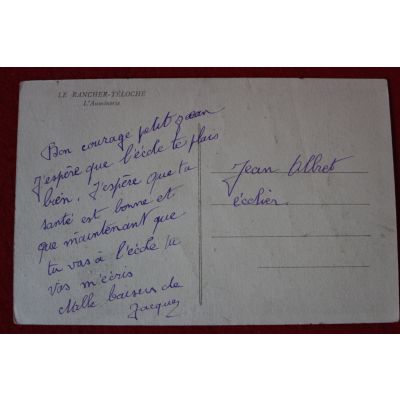 LE RANCHER-TÉLOCHE
L'Aumônerie
Bon courage petit Jean
J'espère que l'école te plais
bien. J'espère que ta
santé est bonne et
que maintenant que
tu vas à l'école tu
vas m'écris
Mille baisers de
Jacques
Jean Albret
écolier